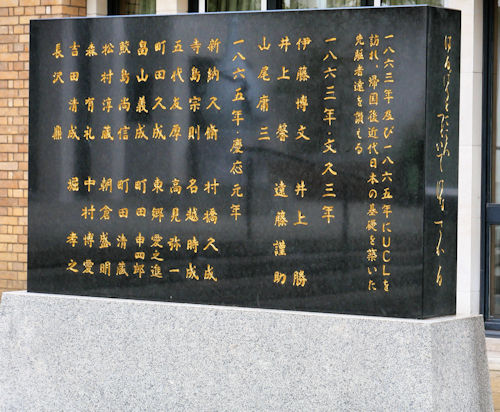 はるばるとこころつどいてはなさかる
一八六三年及び一八六五年にUCLを
訪れ、帰国後近代日本の基礎を築いた
先駆者達を讃える
一八六三年・文久三年
伊藤博文 井上勝
井上馨 遠藤謹助
山尾庸三
一八六五年・慶応元年
新納久脩 村橋久成
寺島宗則 名越時成
五代友厚 高見弥一
町田久成 東郷愛之進
畠山義成 町田申四郎
鮫島尚信 町田清蔵
松村淳蔵 朝倉盛明
森有礼 中村博愛
吉田清成 堀孝之
長沢鼎